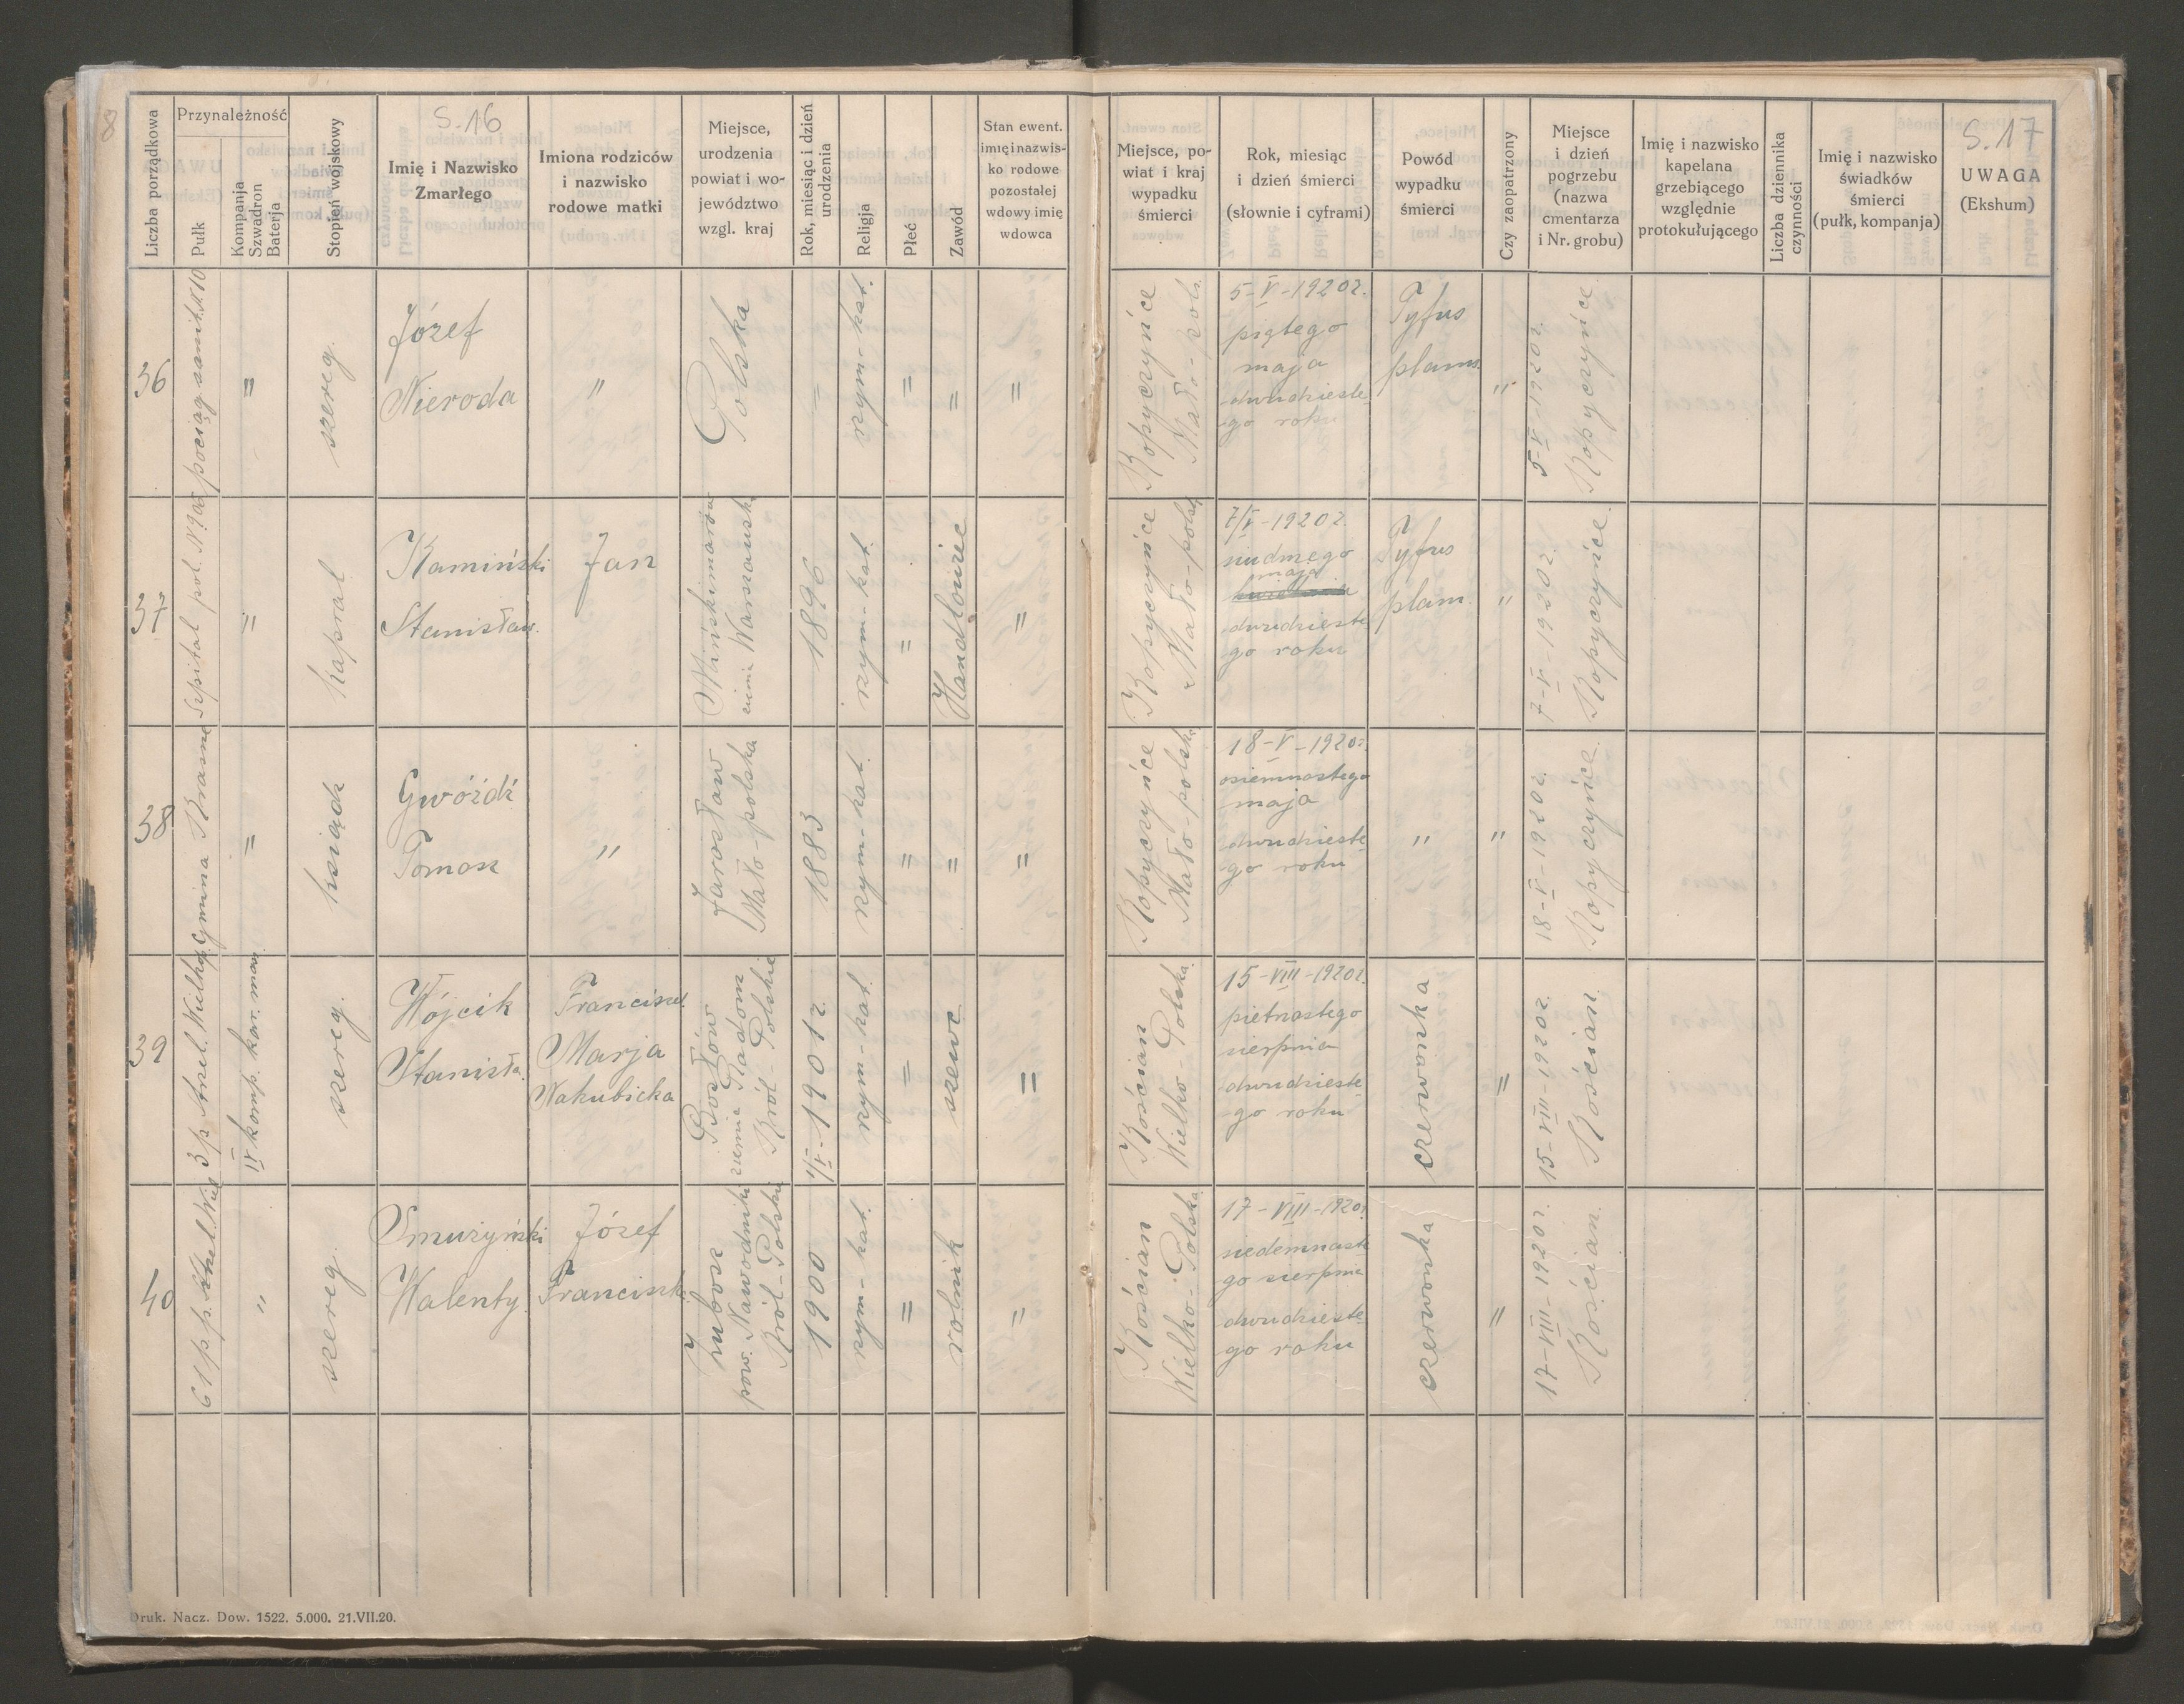 8
S. 16
S. 17
Liczba porządkowa
Przynależność
Pułk
Kompanja
Szwadron
Baterja
Stopień wojskowy
Imię i Nazwisko
Zmarłego
Imiona rodziców
i nazwisko
rodowe matki
Miejsce,
urodzenia
powiat i wo-
jewództwo
wzgl. kraj
Rok, miesiąc i dzień
urodzenia
Religja
Płeć
Zawód
Stan ewent.
imię i nazwis-
ko rodowe
pozostałej
wdowy imię
wdowca
Miejsce, po-
wiat i kraj
wypadku
śmierci
Rok, miesiąc
i dzień śmierci
(słownie i cyframi)
Powód
wypadku
śmierci
Czy zaopatrzony
Miejsce
i dzień
pogrzebu
(nazwa
cmentarza
i Nr. grobu)
Imię i nazwisko
kapelana
grzebiącego
względnie
protokułującego
Liczba dziennika
czynności
Imię i nazwisko
świadków
śmierci
(pułk, kompanja)
UWAGA
(Ekshum)
36
pociąg sanit. N 10
"
szereg.
Józef
Nieroda
"
Polska
=
rzym-kat.
=
=
=
Kopyczyńce
Mało-pols.
5-V-1920 r.
piątego
maja
dwudzieste
go roku
Tyfus
plams.
"
5-V-1920 r.
Kopyczyńce
37
Szpital pol.
"
kapral
Kamiński
Stanisław.
Jan
Warszawsk.
1896
rzym-kat.
=
Handlowiec
"
Kopyczyńce
Mało-polsk
7/V-1920 r.
siudmego
maja
dwudzieste
go roku
Tyfus
plam.
"
7-V-1920 r.
Kopyczyńce
38
Gmina
=
ksiądz
Gwóźdź
Tomasz
"
Jarosław
Mało-polska
1883
rzym-kat.
=
=
"
Kopyczyńce
Mało-polsk
18-V-1920 r.
osiemnastego
maja
dwudzieste
go roku
"
"
18-V-1920 r.
Kopyczyńce
39
3 p. strzel. Wielkp.
IV komp. kar. masz
szereg.
Wójcik
Stanisła.
Franciszek
Marja
Wakubicka
ziemia Radoms
Król-Polskie
1/V-1901 r.
rzym-kat.
=
szewc
"
Kościan
Wielko-Polska
15-VIII-1920 r.
pietnastego
sierpnia
dwudzieste
go roku
czerwonka
"
15-VIII-1920 r.
Kościan
40
61 p.p. Strzel. Wiel
"
szereg.
Smużyński
Walenty
Józef
Francisz.
pow.
Król-Polski
1900
rzym-kat.
=
rolnik
"
Kościan
Wielko-Polska
17-VIII-1920 r.
siedemnaste
go sierpnia
dwudzieste
go roku
czerwonka
"
17-VIII-1920 r.
Kościan.
Druk. Nacz. Dow. 1522. 5.000. 21.VII.20.